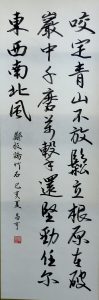 咬定青山不放鬆立根原在破
巖中千磨萬擊還堅勁任尔
東西南北風 鄭板橋竹石 己亥夏